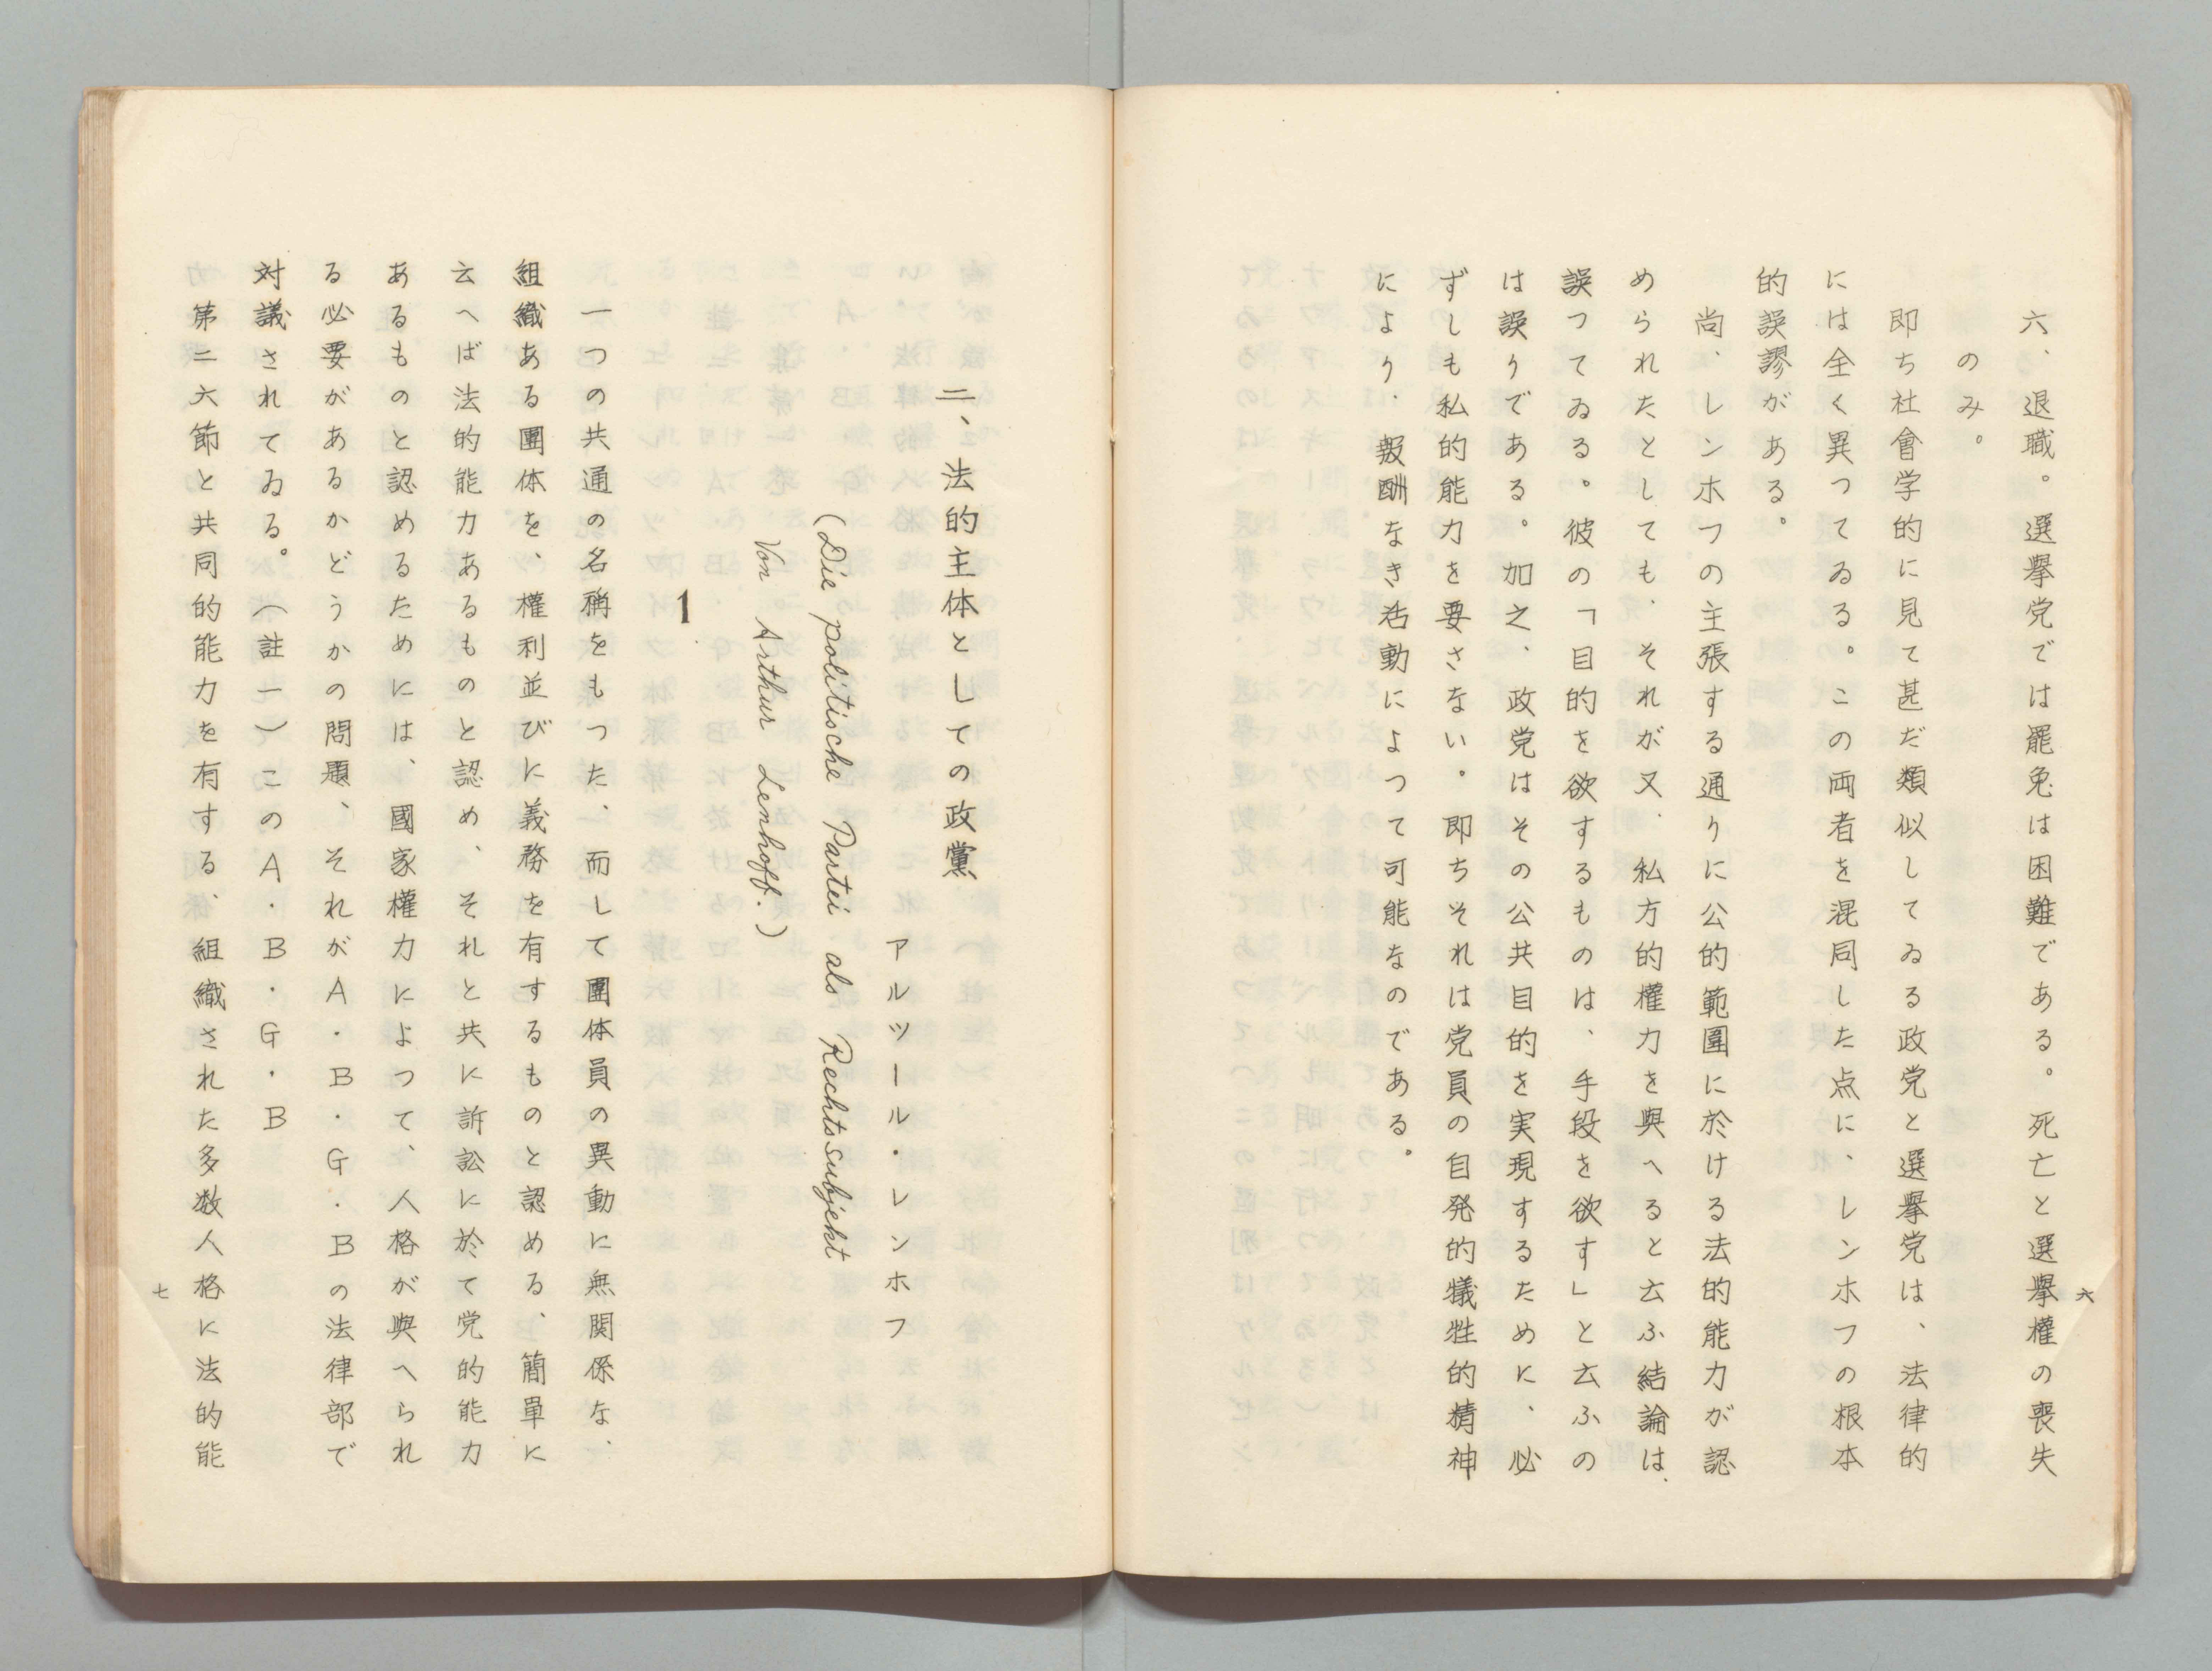 六、退職。選擧党では罷免は困難である。死亡と選擧權の喪失
のみ。
即ち社會学的に見て甚だ類似してゐる政党と選擧党は、法律的
には全く異つてゐる。この両者を混同した点に、レンホフの根本
的誤謬がある。
尚、レンホフの主張する通りに公的範圍に於ける法的能力が認
められたとしても、それが又、私方的權力を與へると云ふ結論は、
誤つてゐる。彼の「目的を欲するものは、手段を欲す」と云ふの
は誤りである。加之、政党はその公共目的を実現するために、必
ずしも私的能力を要さない。即ちそれは党員の自発的犠牲的精神
により、報酬なき活動によつて可能なのである。
六
二、法的主体としての政黨
アルツール・レンホフ
(Die politische Partei als Rechtssubjekt
Von Arthur Lenhoff.)
1
一つの共通の名稱をもつた、而して團体員の異動に無関係な、
組織ある團体を、權利並びに義務を有するものと認める、簡單に
云へば法的能力あるものと認め、それと共に訴訟に於て党的能力
あるものと認めるためには、國家權力によつて、人格が與へられ
る必要があるかどうかの問題、それがA・B・G・Bの法律部で
対議されてゐる。(註一)このA・B・G・B
第二六節と共同的能力を有する、組織された多数人格に法的能
七